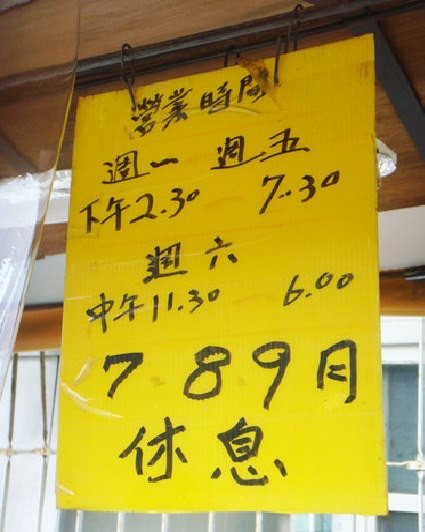 營業時間
週一 週五
下午2.30 7.30
週六
中午11.30 6.00
7 8 9月
休息